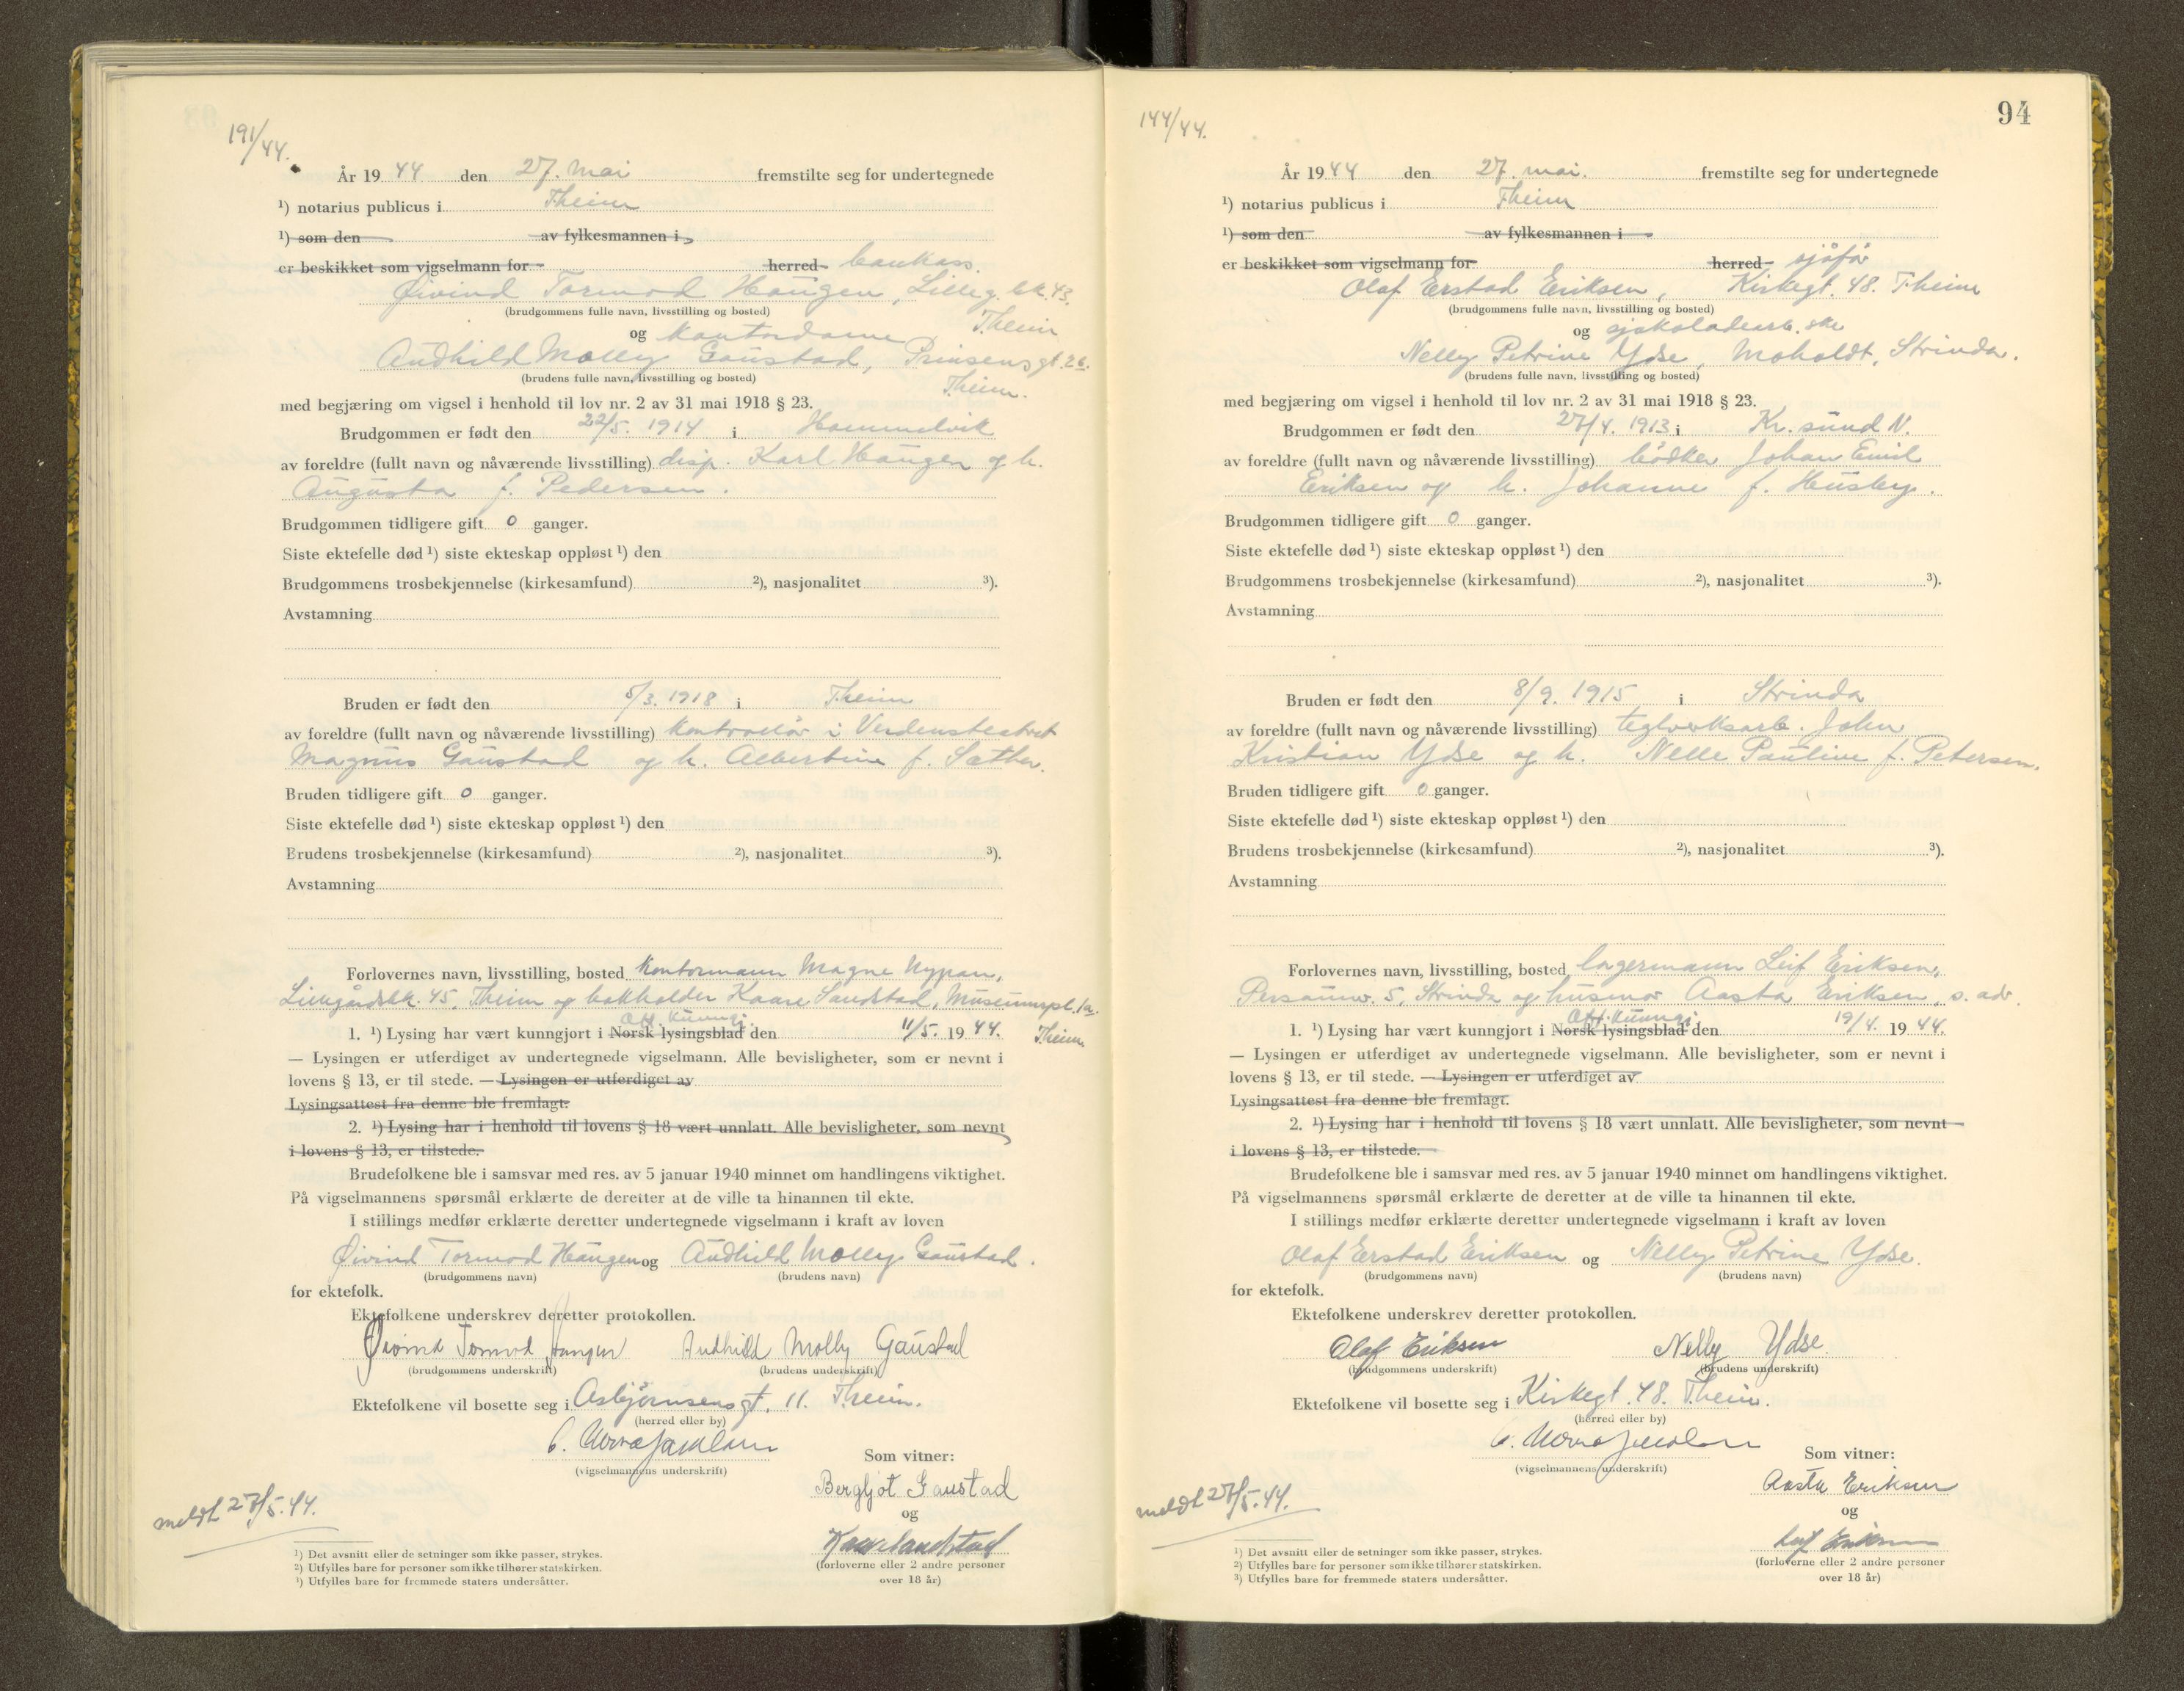 191/44.
År 1944 den 27. mai fremstilte seg for undertegnede
¹) notarius publicus i Theim
¹) som den av fylkesmannen i
er beskikket som vigselmann for herred bankass.
Øivind Tormod Haugen, Lilleg. bk. 43.
(brudgommens fulle navn, livsstilling og bosted) Theim
og kontordame
Audhild Molly Gaustad, Prinsensgt. 26.
(brudens fulle navn, livsstilling og bosted) Theim.
med begjæring om vigsel i henhold til lov nr. 2 av 31 mai 1918 § 23.
Brudgommen er født den 22/5. 1914 i Hommelvik
av foreldre (fullt navn og nåværende livsstilling) disp. Karl Haugen og h.
Augusta f. Pedersen.
Brudgommen tidligere gift 0 ganger.
Siste ektefelle død ¹) siste ekteskap oppløst ¹) den
Brudgommens trosbekjennelse (kirkesamfund) ²), nasjonalitet ³).
Avstamning
Bruden er født den 5/3. 1918 i Theim
av foreldre (fullt navn og nåværende livsstilling) kontrollør i Verdensteatret
Magnus Gaustad og h. Albertine f. Sæther.
Bruden tidligere gift 0 ganger.
Siste ektefelle død ¹) siste ekteskap oppløst ¹) den
Brudens trosbekjennelse (kirkesamfund) ²), nasjonalitet ³).
Avstamning
Forlovernes navn, livsstilling, bosted kontormann Magne Nypan,
Lillegårdsbk. 45, Theim og bokholder Kaare Sandstad, Museumspl. 1a.
Off. kunngj.
1. ¹) Lysing har vært kunngjort i Norsk lysingsblad den 11/5. 1944. Theim
— Lysingen er utferdiget av undertegnede vigselmann. Alle bevisligheter, som er nevnt i
lovens § 13, er til stede. — Lysingen er utferdiget av
Lysingsattest fra denne ble fremlagt.
2. ¹) Lysing har i henhold til lovens § 18 vært unnlatt. Alle bevisligheter, som nevnt
i lovens § 13, er tilstede.
Brudefolkene ble i samsvar med res. av 5 januar 1940 minnet om handlingens viktighet.
På vigselmannens spørsmål erklærte de deretter at de ville ta hinannen til ekte.
I stillings medfør erklærte deretter undertegnede vigselmann i kraft av loven
Øivind Tormod Haugen og Audhild Molly Gaustad.
(brudgommens navn) (brudens navn)
for ektefolk.
Ektefolkene underskrev deretter protokollen.
Øivind Tormod Haugen Audhild Molly Gaustad
(brudgommens underskrift) (brudens underskrift)
Ektefolkene vil bosette seg i Asbjørnsensgt. 11. Theim.
(herred eller by)
(vigselmannens underskrift)
Som vitner:
Bergljot Gaustad
og
Kaare Sandstad
(forloverne eller 2 andre personer
over 18 år)
meldt 27/5. 44.
¹) Det avsnitt eller de setninger som ikke passer, strykes.
²) Utfylles bare for personer som ikke tilhører statskirken.
³) Utfylles bare for fremmede staters undersåtter.
94
144/44.
År 1944 den 27. mai. fremstilte seg for undertegnede
¹) notarius publicus i Theim
¹) som den av fylkesmannen i
er beskikket som vigselmann for herred sjåfør
Olaf Erstad Eriksen, Kirkegt. 48. Theim
(brudgommens fulle navn, livsstilling og bosted)
og sjokoladearb.ske
Nelly Petrine Ydse, Moholdt, Strinda.
(brudens fulle navn, livsstilling og bosted)
med begjæring om vigsel i henhold til lov nr. 2 av 31 mai 1918 § 23.
Brudgommen er født den 27/4. 1913 i Kr.sund N.
av foreldre (fullt navn og nåværende livsstilling) bødker Johan Emil
Eriksen og h. Johanne f. Husby.
Brudgommen tidligere gift 0 ganger.
Siste ektefelle død ¹) siste ekteskap oppløst ¹) den
Brudgommens trosbekjennelse (kirkesamfund) ²), nasjonalitet ³).
Avstamning
Bruden er født den 8/9. 1915 i Strinda
av foreldre (fullt navn og nåværende livsstilling) teglverksarb. John
Kristian Ydse og h. Nelle Pauline f. Petersen.
Bruden tidligere gift 0 ganger.
Siste ektefelle død ¹) siste ekteskap oppløst ¹) den
Brudens trosbekjennelse (kirkesamfund) ²), nasjonalitet ³).
Avstamning
Forlovernes navn, livsstilling, bosted lagermann Leif Eriksen,
Persaunv. 5, Strinda og husmor Aasta Eriksen, s. adr.
Off. kunngj.
1. ¹) Lysing har vært kunngjort i Norsk lysingsblad den 19/4. 1944.
— Lysingen er utferdiget av undertegnede vigselmann. Alle bevisligheter, som er nevnt i
lovens § 13, er til stede. — Lysingen er utferdiget av
Lysingsattest fra denne ble fremlagt.
2. ¹) Lysing har i henhold til lovens § 18 vært unnlatt. Alle bevisligheter, som nevnt
i lovens § 13, er tilstede.
Brudefolkene ble i samsvar med res. av 5 januar 1940 minnet om handlingens viktighet.
På vigselmannens spørsmål erklærte de deretter at de ville ta hinannen til ekte.
I stillings medfør erklærte deretter undertegnede vigselmann i kraft av loven
Olaf Erstad Eriksen og Nelly Petrine Ydse.
(brudgommens navn) (brudens navn)
for ektefolk.
Ektefolkene underskrev deretter protokollen.
Olaf Eriksen Nelly Ydse.
(brudgommens underskrift) (brudens underskrift)
Ektefolkene vil bosette seg i Kirkegt. 48. Theim.
(herred eller by)
(vigselmannens underskrift)
Som vitner:
Aasta Eriksen
og
Leif Eriksen
(forloverne eller 2 andre personer
over 18 år)
meldt 27/5. 44.
¹) Det avsnitt eller de setninger som ikke passer, strykes.
²) Utfylles bare for personer som ikke tilhører statskirken.
³) Utfylles bare for fremmede staters undersåtter.